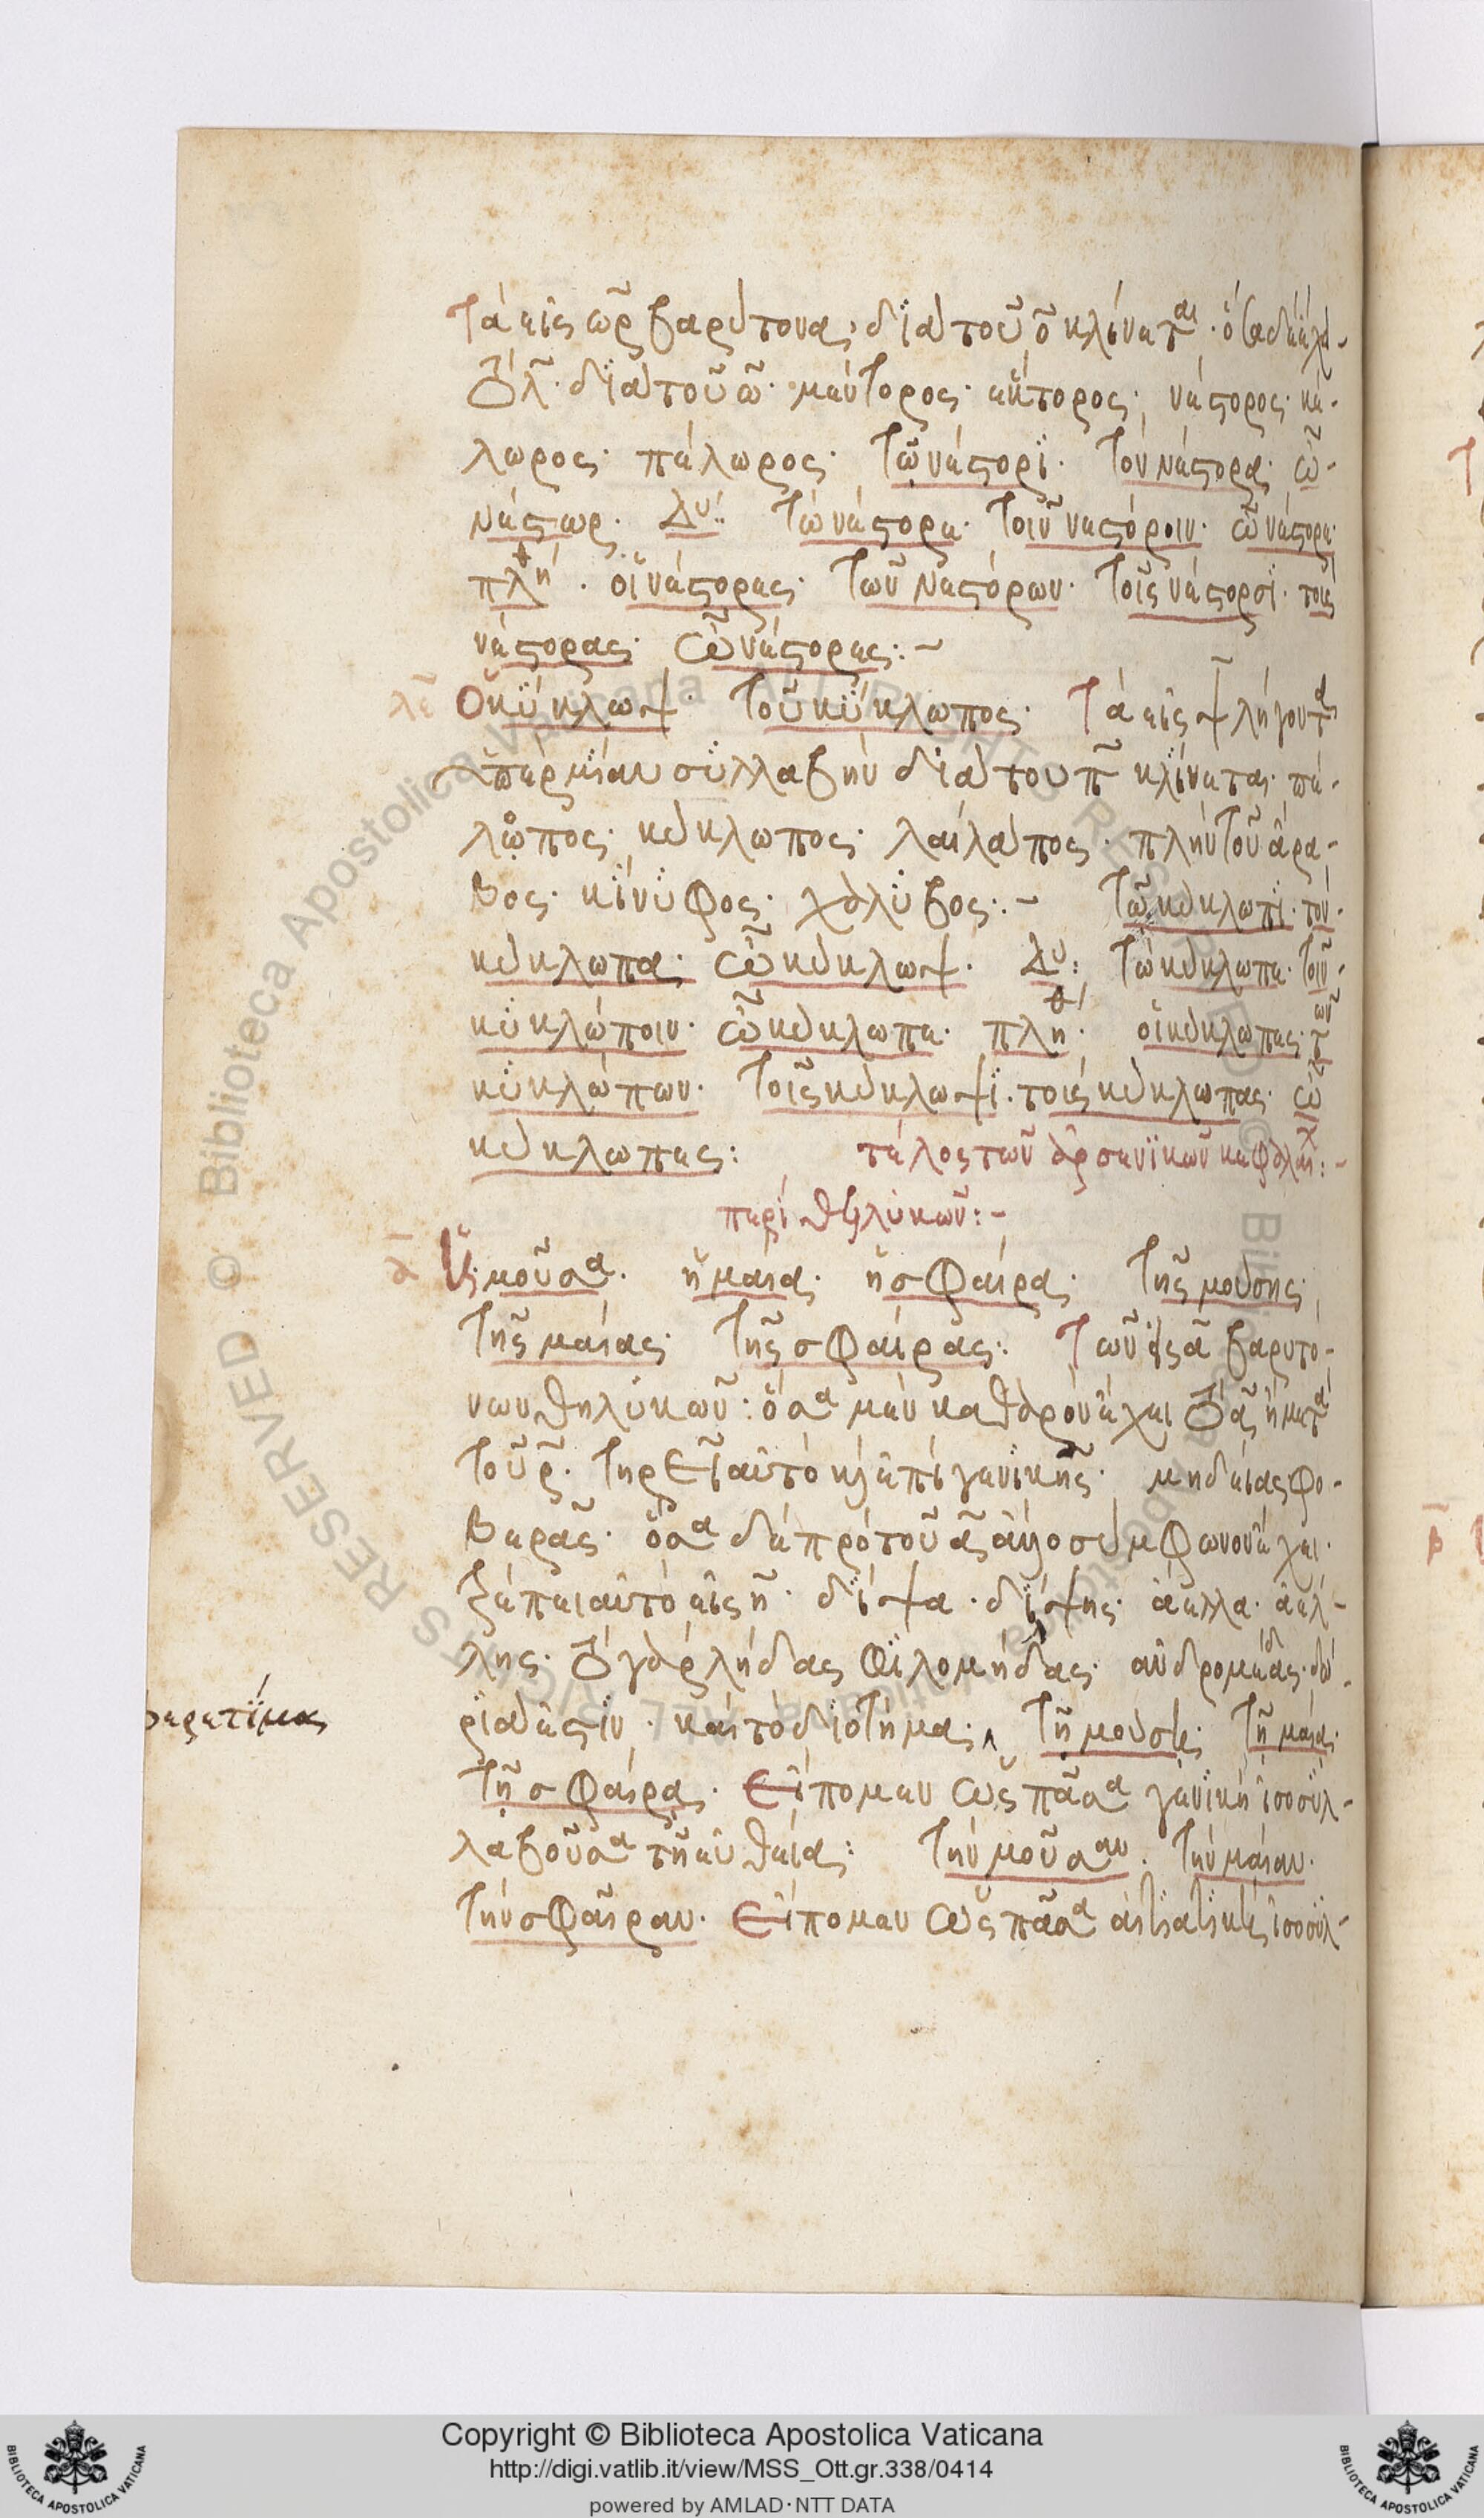 Τὰ εἰς ωρ βαρύτονα, διὰ τοῦ ο κλίνεται· ὅσα δὲ ἐκλή-
διὰ τοῦ ω· μέντορος· ἕκτορος· νέστορος· κέ-
λωρος· πέλωρος· Τῶ νέστορι· Τὸν νέστορα· ὦ
νέστωρ. Δυ: Τὼ νέστορε· Τοῖν νεστόροιν· ὦ νέστορε·
πλη· οἱ νέστορες· Τῶν νεστόρων· Τοῖς νέστορσι· τοὺς
νέστορας· ὦ νέστορες:~
λε Ὁ κύκλωψ· Τοῦ κύκλωπος· Τὰ εἰς ψ λήγοντα
ὑπὲρ μίαν συλλαβὴν διὰ του π κλίνεται· πέ-
λωπος· κύκλωπος· λαίλαπος· πλὴν Τοῦ ἄρα-
βος· κίνυφος· χάλυβος:~ Τῶ κύκλωπι· τὸν
κύκλωπα· ὦ κύκλωψ· Δυ: Τὼ κύκλωπε· Τοῖν
κυκλώποιν· ὦ κύκλωπε· πλη· οἱ κύκλωπες· τῶν
κυκλώπων· Τοῖς κύκλωψι· τοὺς κύκλωπας· ὦ
κύκλωπες: τέλος τῶν ἀρσενικῶν κεφαλαι:~
περὶ θηλυκῶν:~
α Ἡ μοῦσα· ἡ μαία· ἡ σφαίρα· Τῆς μούσης
Τῆς μαίας· Τῆς σφαίρας: Τῶν εἰς α βαρυτό-
νων θηλυκῶν: ὅσα μὲν καθαρὸν ἔχει α ἢ μετὰ
Τοῦ ρ· Τηρεῖ αὐτὸ κἀπὶ γενικῆς· μηδείας φο-
βερᾶς· ὅσα δὲ πρὸ τοῦ α σύμφωνον ἔχει·
Τρέπει αὐτὸ εἰς η· δίψα· δίψης· ἄελλα· ἀέλ-
λης· γὰρ λήδας φιλομήδας· ἀνδρομέδας· δώ-
ριά ἐστιν· καὶ τὸ διοτήμα· Τῆ μούση· Τῆ μαία·
Τῆ σφαίρα· Εἴπομεν ὡς πᾶσα γενικὴ ἰσοσυλ-
λαβοῦσα τῆ εὐθεία: Τὴν μοῦσαν· Τὴν μαίαν·
Τὴν σφαῖραν· Εἴπομεν ὡς πᾶσα αἰτιατικὴ ἰσοσυλ-
Copyright © Biblioteca Apostolica Vaticana
http://digi.vatlib.it/view/MSS_Ott.gr.338/0414
powered by AMLAD·NTT DATA